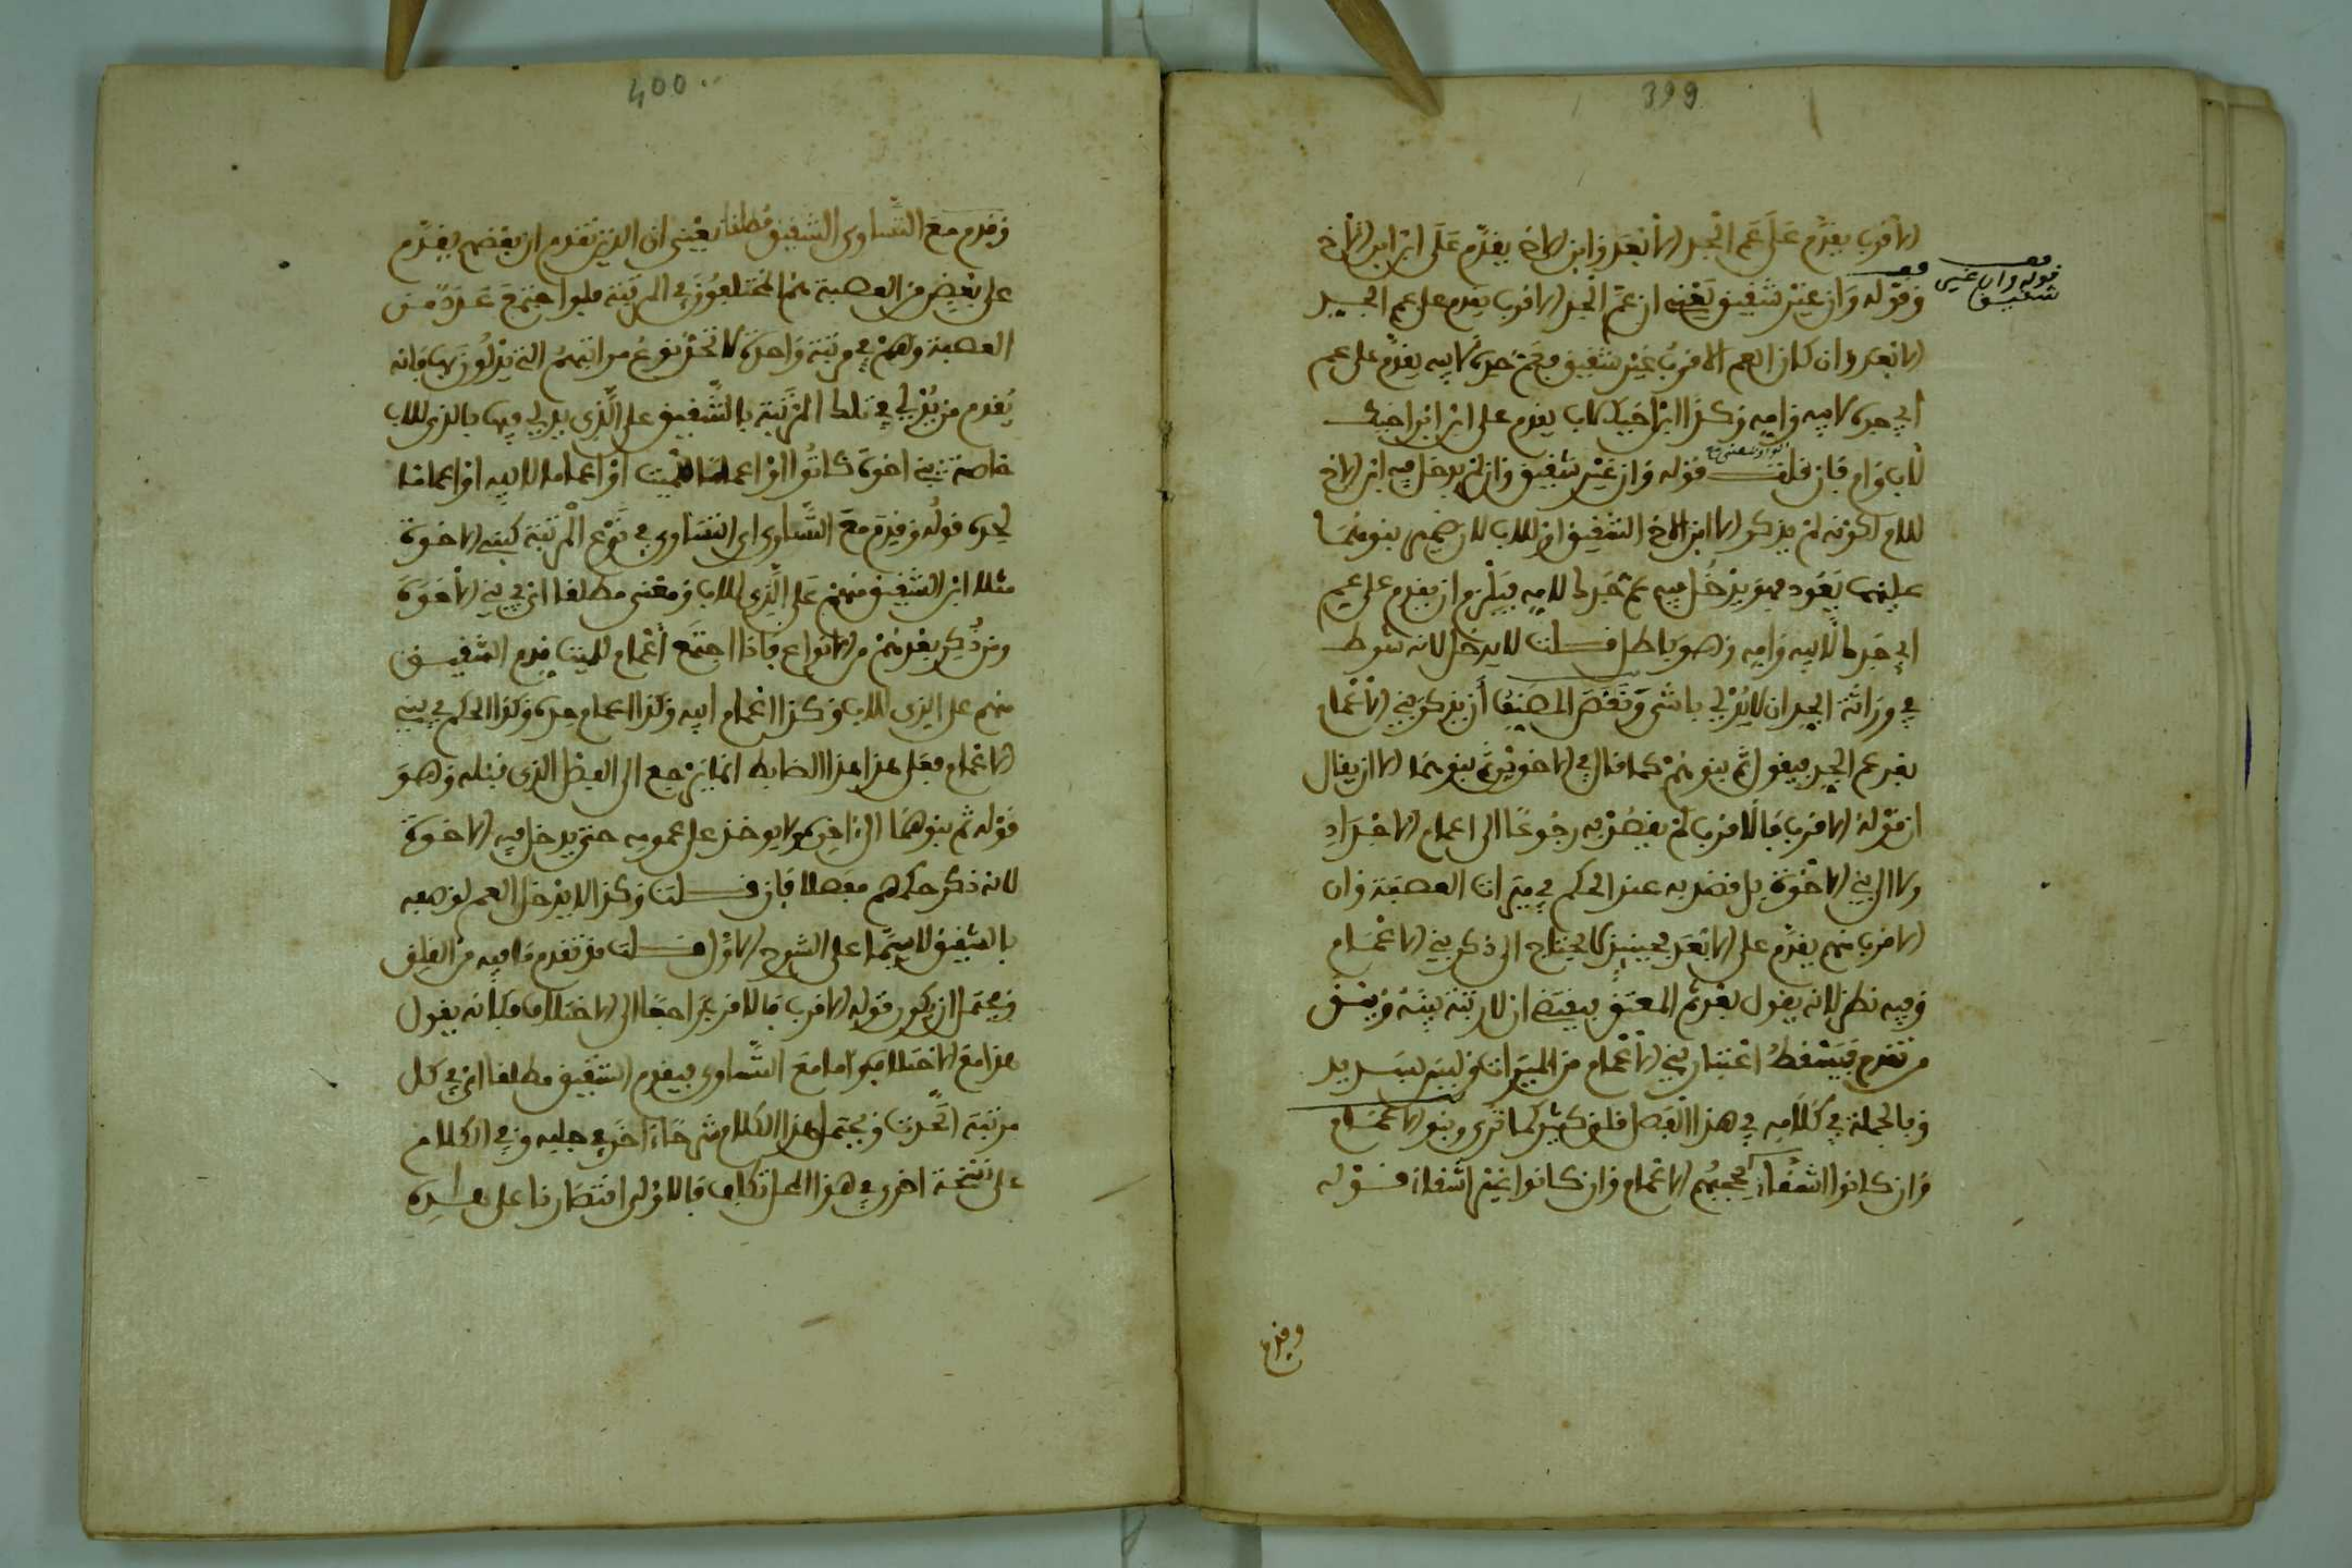 399
الاقرب يقدم على عم الجد الابعد وابن الاخ يقدم على ابن ابن الاخ
وقوله وان غير شقيق يعني ان عم الجد الاقرب يقدم على عم الجد
قوله وان غير
شقيق
الابعد وان كان العم الاقرب غير شقيق فعم جده لابيه يقدم على عم
ابي جده لابيه وامه وكذا ابن اخيك لاب يقدم على ابن ابن اخيك
لاب وام فان قلت قوله وان غير شقيق وان لم يدخل فيه ابن الاخ
للام لكونه لم يذكر الا ابن الاخ الشقيق او للاب لان ضمير بنوهما
عليهما يعود فهو يدخل فيه عم جدك لامه فيلزم ان يقدم على عم
ابي جدك لابيه وامه وهو باطل قلت لا يدخل لانه شرط
في وراثة الجد ان لا يدلي بانثى ونقص المصنف ان يذكر بني الاعمام
بعد عم الجد فيقول ثم بنوهم كما قال في الاخوين ثم بنوهما الا ان يقال
ان قوله الاقرب فالاقرب لم يقصر به رجوعا الى اعمام الاجداد
ولا الى بني الاخوة بل قصد به عند الحكم في ميراث العصبة وان
الاقرب منهم يقدم على الابعد فحينئذ لا يحتاج الى ذكر بني الاعمام
وفيه نظر لانه يقول بعد ثم المعتق فيقتضي ان لا رتبة بينه وبين
من تقدم فيسقط اعتبار بني الاعمام من الميراث وليس بسديد
وبالجملة في كلامه في هذا الفصل قلق كثير كما ترى وبنو الاعمام
وان كانوا اشقاء يحجبهم الاعمام وان كانوا غير اشقاء قوله
وقدم
400
وقدم مع التساوي الشقيق مطلقا يعني ان الذين تقدم ان بعضهم يقدم
على بعض من العصبة هم المختلفون في المرتبة فلو اجتمع عدد من
العصبة وهم في مرتبة واحدة لاتحد نوع مراتبهم التي يدلون بها فانه
يقدم من يدلي في تلك المرتبة بالشقيق على الذي يدلي فيها بالذي للاب
خاصة بني اخوة كانوا او اعماما للميت او اعماما لابيه او اعماما
لجده قوله وقدم مع التساوي اي التساوي في نوع المرتبة كبني الاخوة
مثلا ابن الشقيق منهم على الذي للاب ومعنى مطلقا اي في بني الاخوة
ومن ذكر بعدهم من الانواع فاذا اجتمع اعمام للميت قدم الشقيق
منهم على الذي للاب وكذا اعمام ابيه وكذا اعمام جده وكذا الحكم في بني
الاعمام فعلى هذا هذا الضابط انما يرجع الى الفصل الذي قبله وهو
قوله ثم بنوهما الى اخره ولا يوخذ على عمومه حتى يدخل فيه الاخوة
لانه ذكر حكمهم مفصلا فان قلت وكذا لا يدخل العم لوصفه
بالشقيق لا سيما على الشرح الاول قلت قد تقدم ما فيه من القلق
ويحتمل ان يكون قوله الاقرب فالاقرب راجعا الى الاختلاف فكانه يقول
هذا مع الاختلاف واما مع التساوي فيقدم الشقيق مطلقا اي في كل
مرتبة اتحدت ويحتمل هذا الكلام شرحا اخر في جليه وفي الكلام
على نسخة اخرى في هذا المحل تكلف فالاولى اقتصارنا على